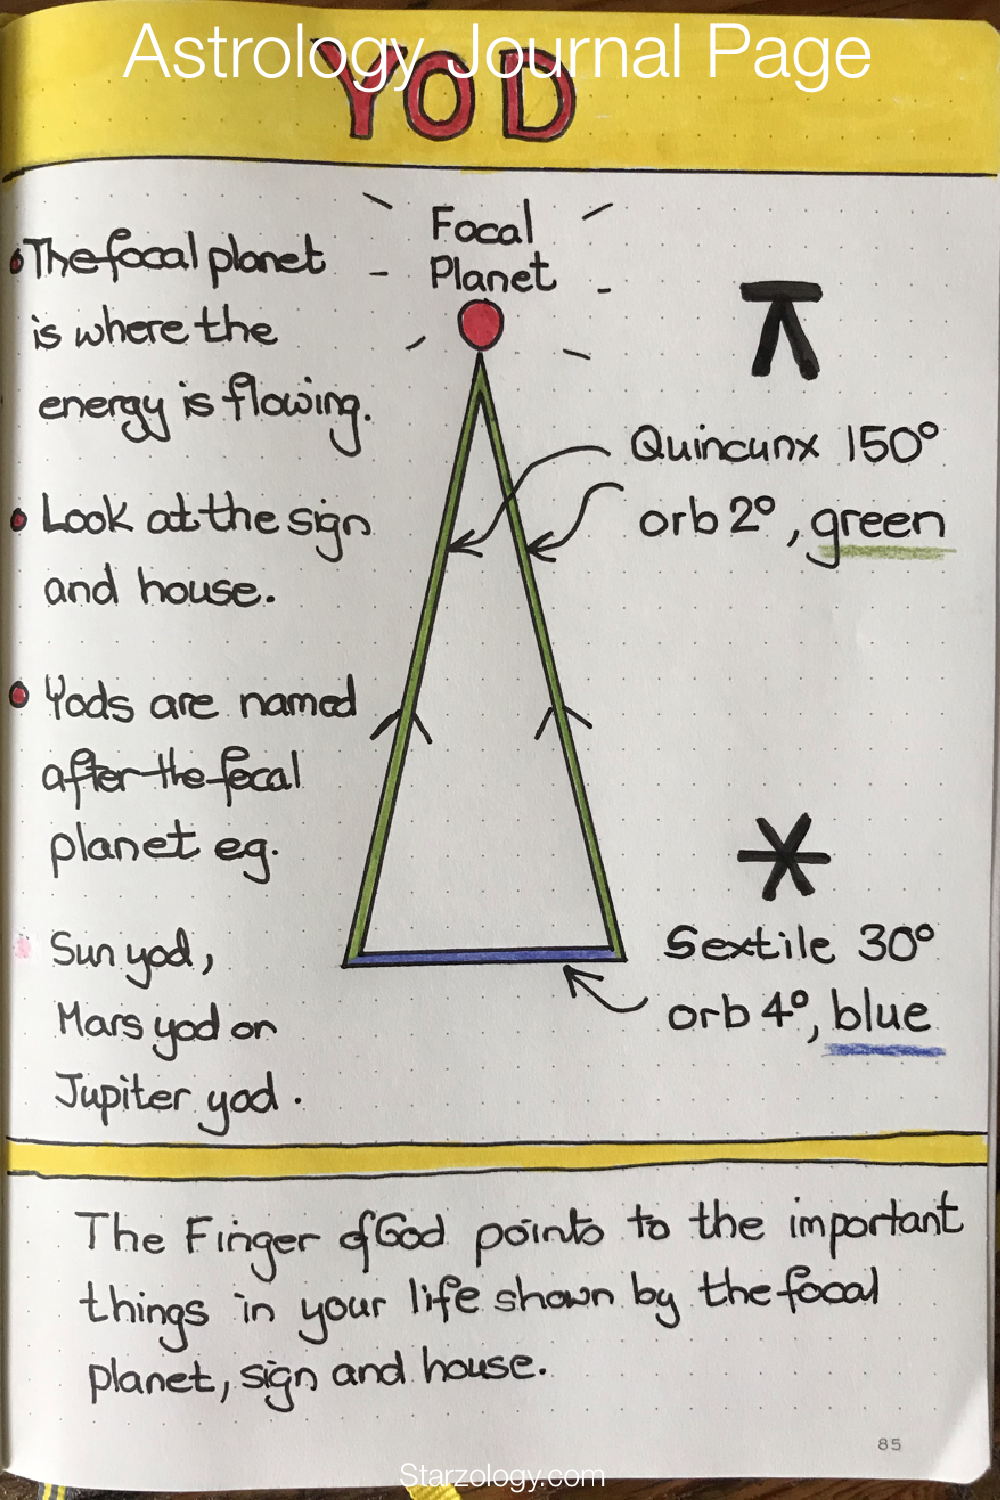 Astrology Journal Page
YOD
Focal
Planet
The focal planet
is where the
energy is flowing.
Look at the sign
and house.
Yods are named
after the focal
planet eg.
Sun yod,
Mars yod or
Jupiter yod.
Quincunx 150°
orb 2°, green
Sextile 30°
orb 4°, blue
The Finger of God points to the important
things in your life shown by the focal
planet, sign and house.
85
Starzology.com